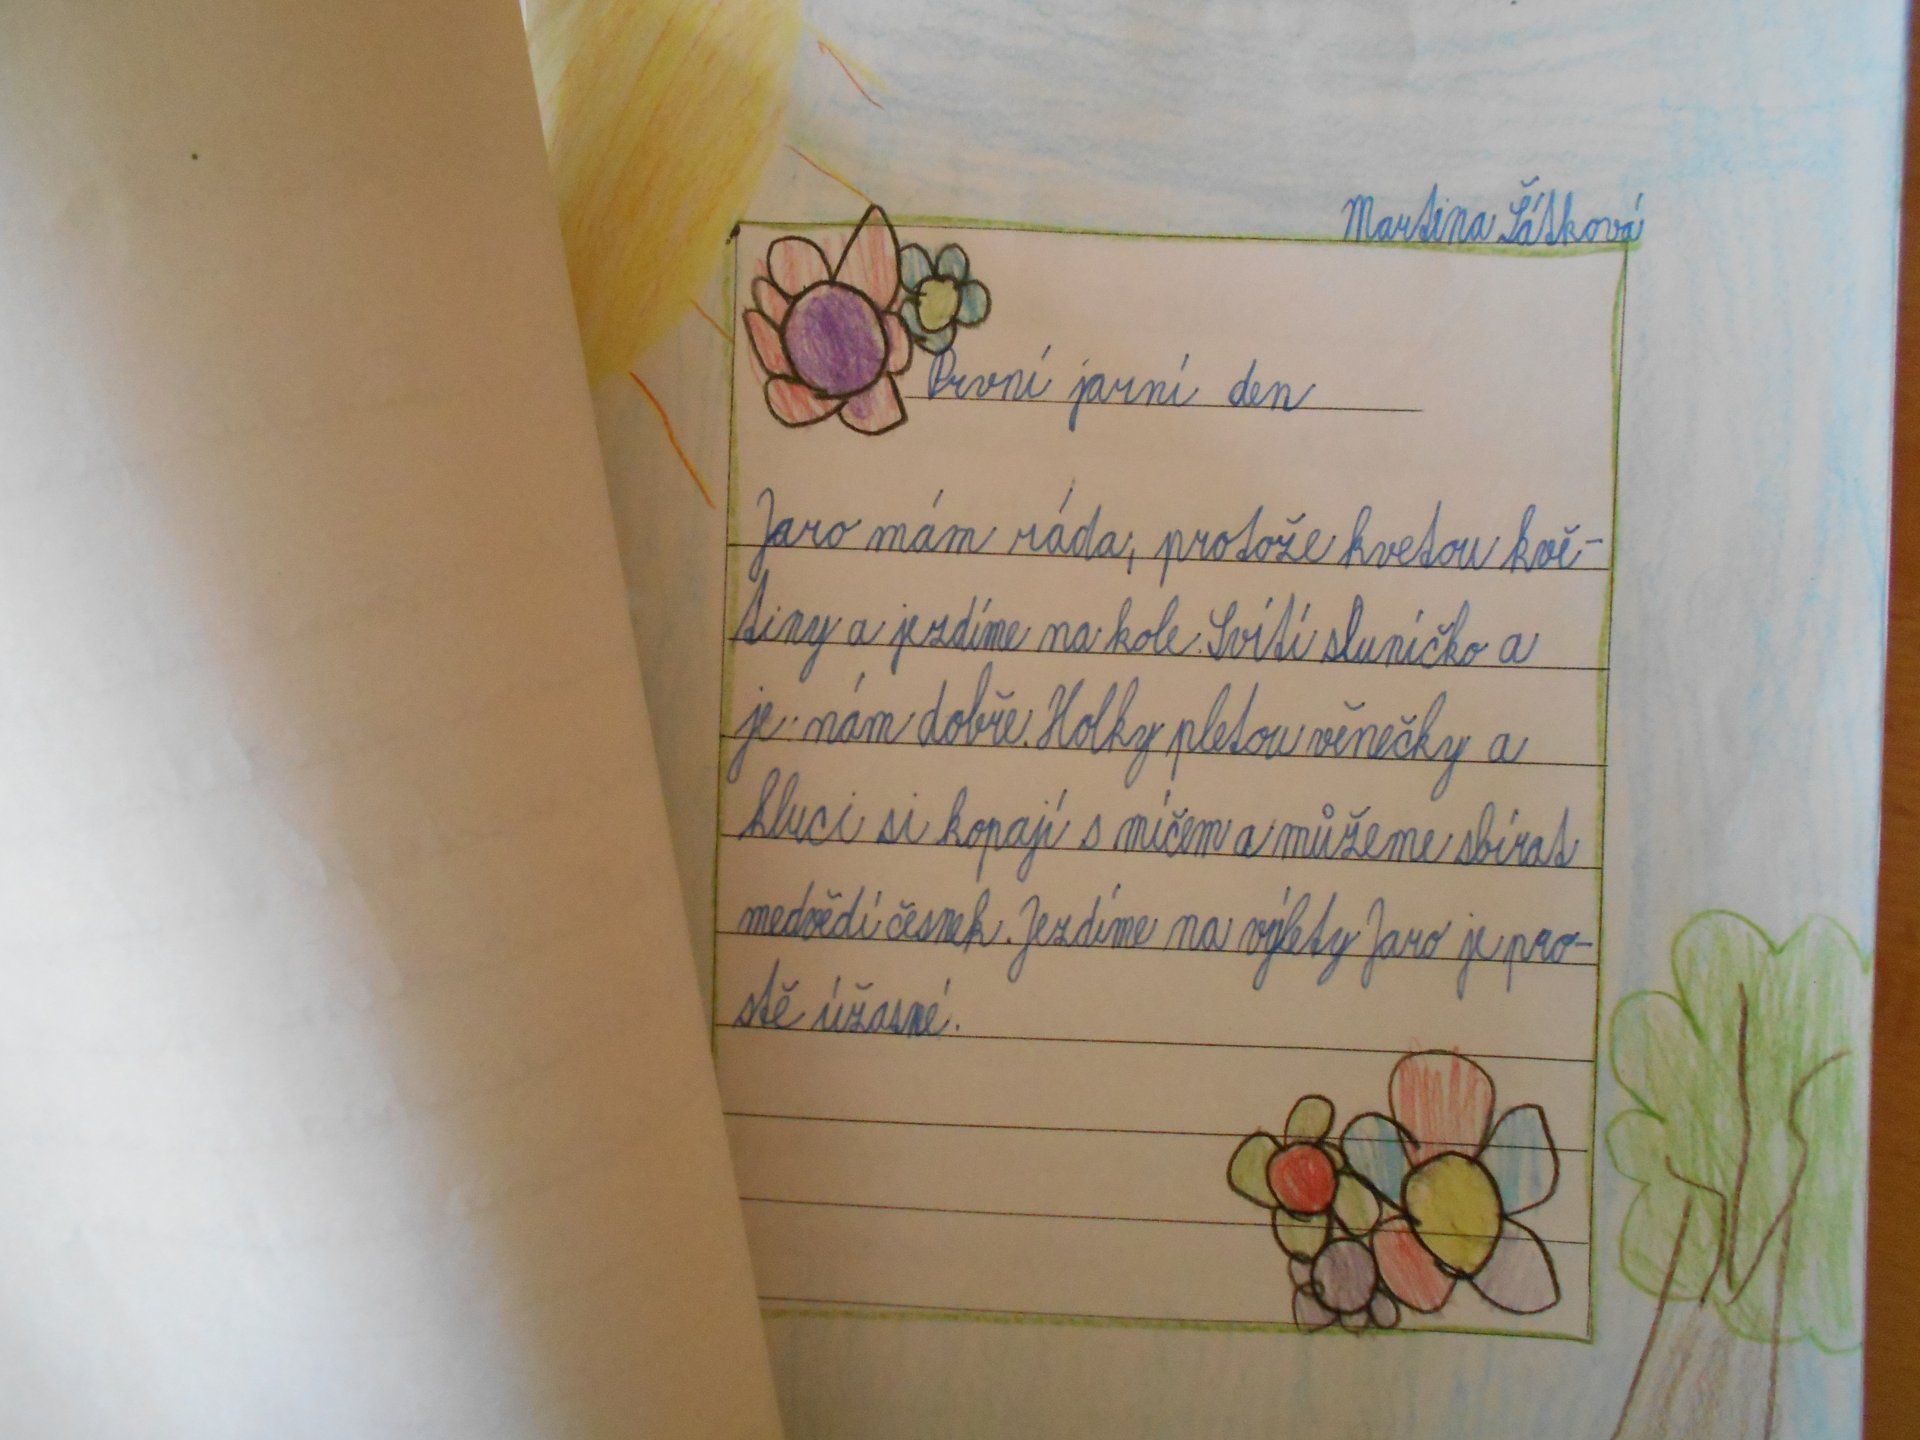 Martina Šátková
První jarní den
Jaro mám ráda, protože kvetou kvě-
tiny a jezdíme na kole. Svítí sluníčko a
je nám dobře. Holky pletou věnečky a
kluci si kopají s míčem a můžeme sbírat
medvědí česnek. Jezdíme na výlety Jaro je pro-
stě úžasné.